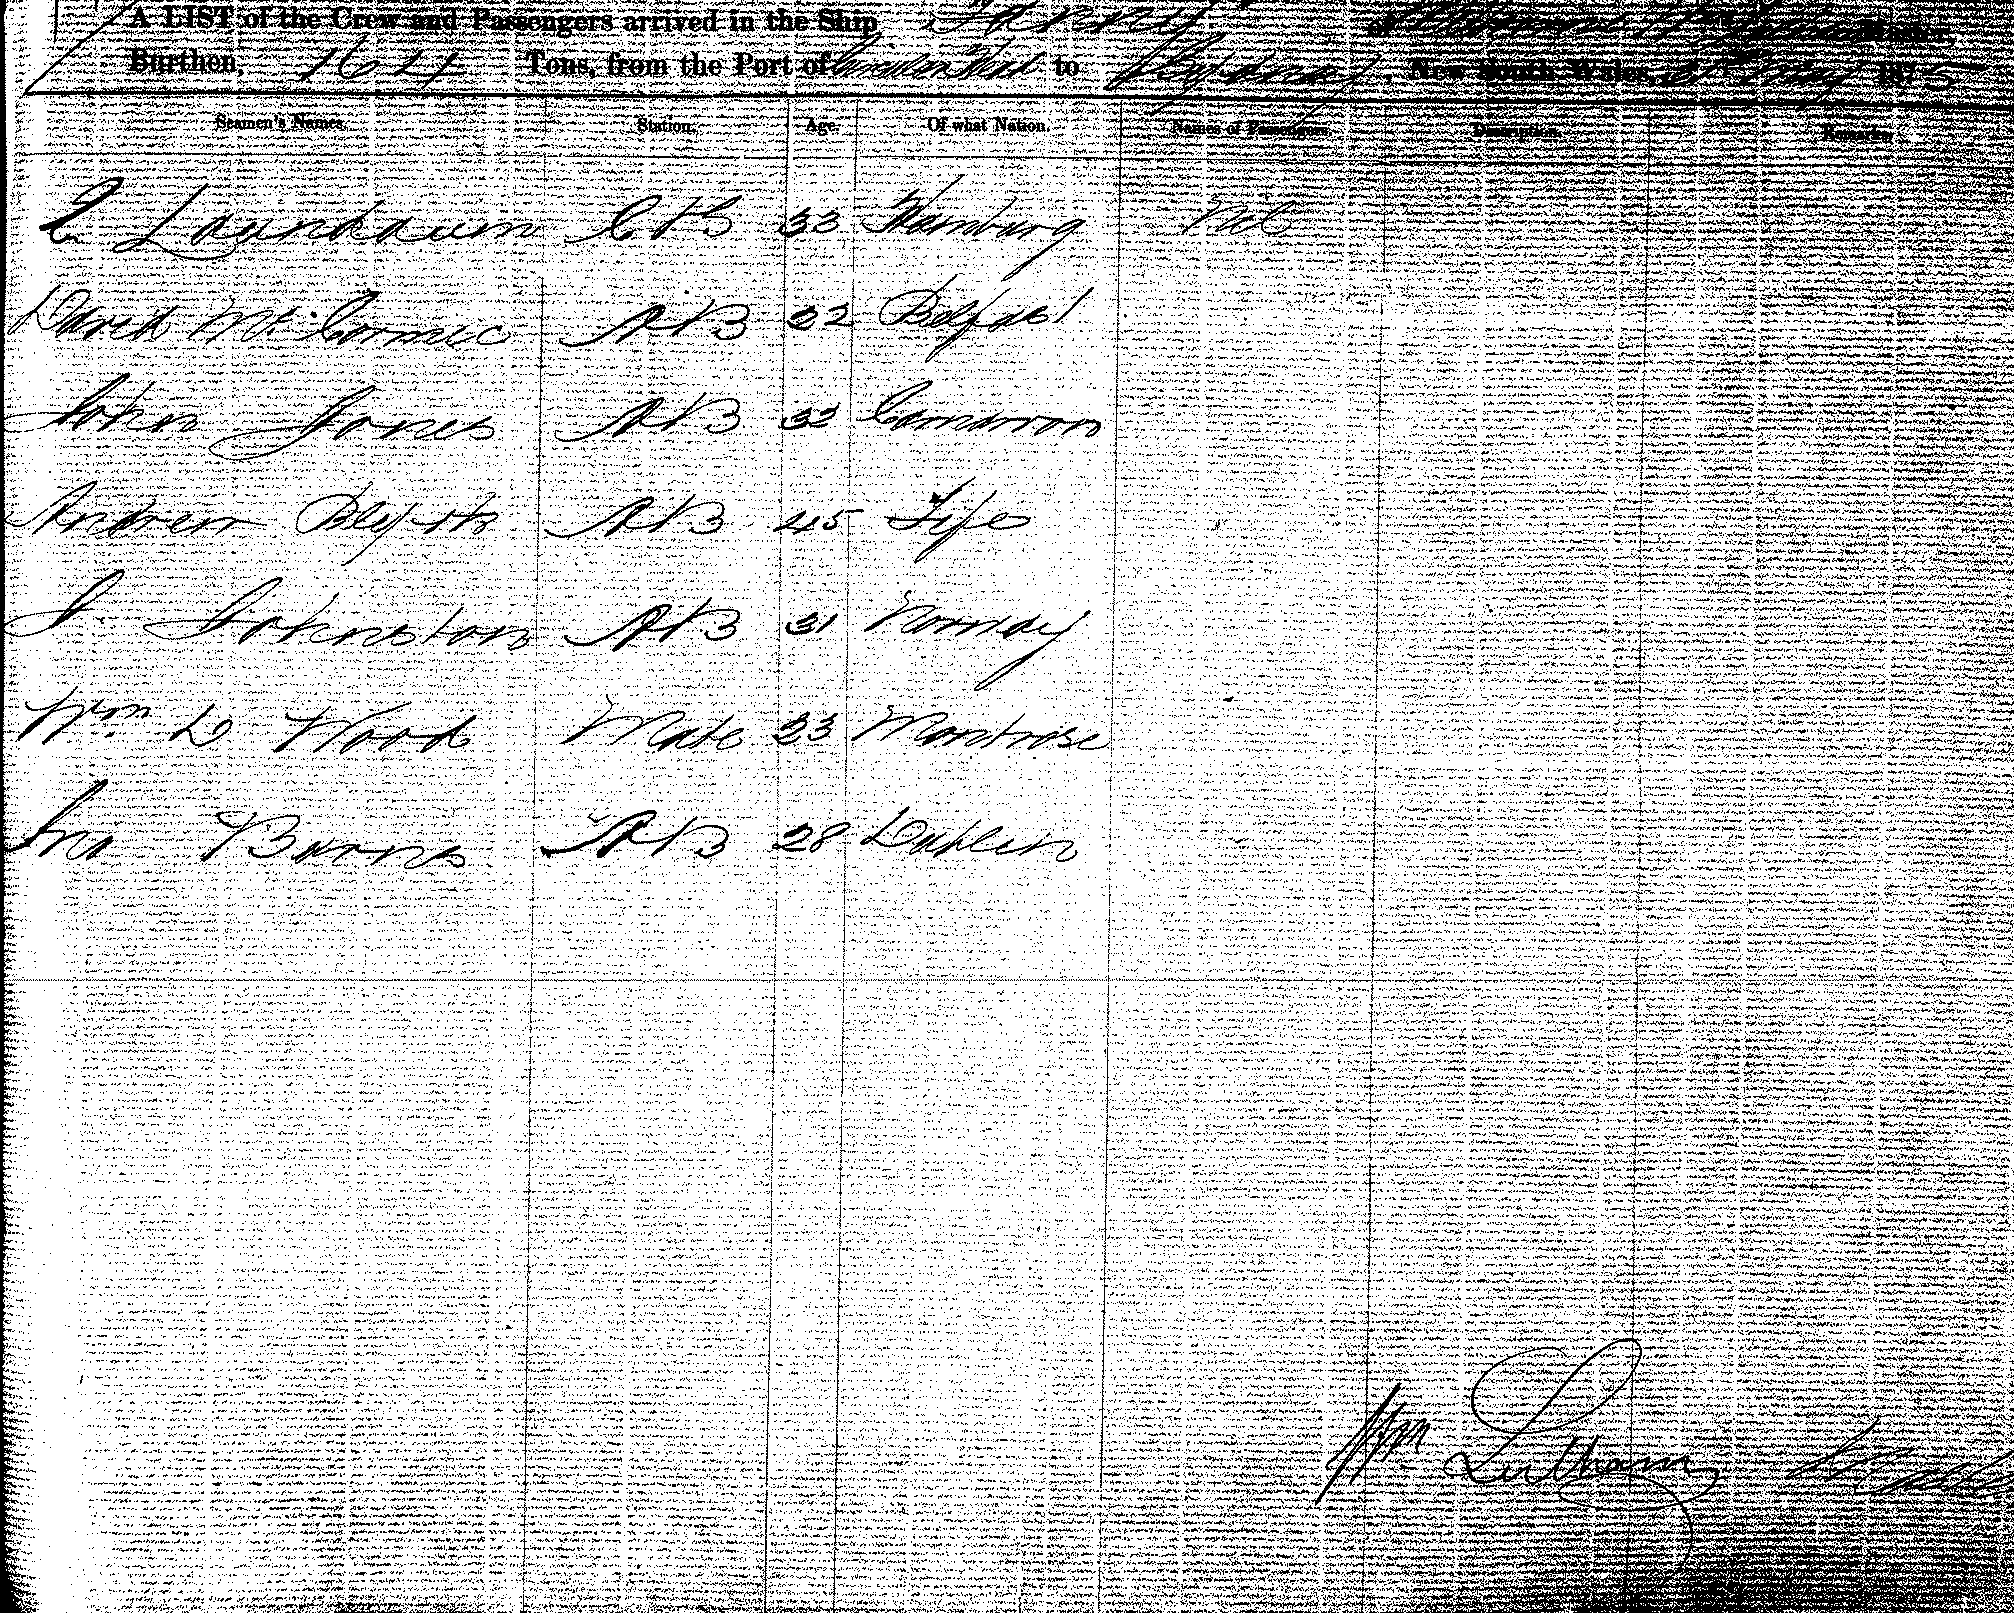 A LIST of the Crew and Passengers arrived in the Ship Fanny of Master,
Burthen, 164 Tons, from the Port of to Sydney, New South Wales, 1875
Seamen's Names. Station. Age. Of what Nation. Names of Passengers. Description. Remarks.
33 Hamburg Nil
David McCormic AB 22 Belfast
John Jones AB 32
Andrew AB 45 Fife
J Johnston AB 31 Norway
Wm D Wood Mate 33 Montrose
Jno Barns AB 28 Dublin
Wm Lulham